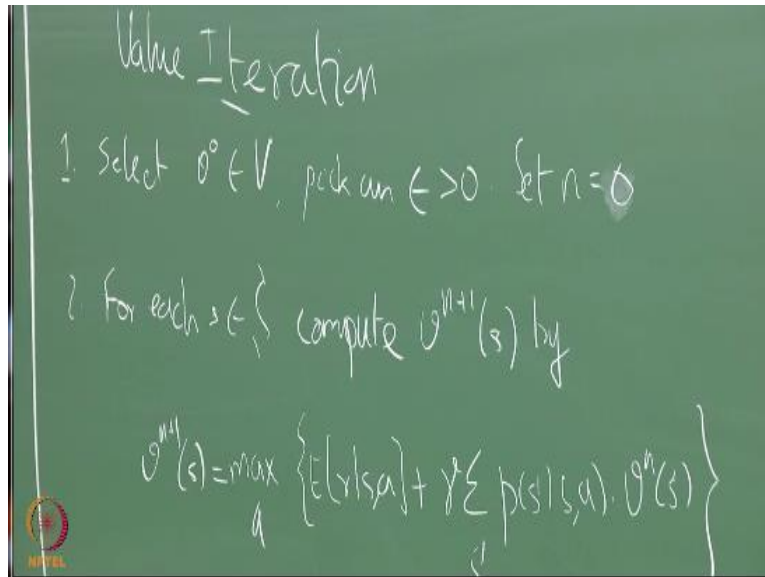 Value Iteration
1. Select v⁰ ∈ V, pick an ϵ > 0. Set n = 0
2. For each s ∈ S compute vⁿ⁺¹(s) by
vⁿ⁺¹(s) = max {E[r|s,a] + γ Σ p(s'|s,a). vⁿ(s')}
a s'
NPTEL